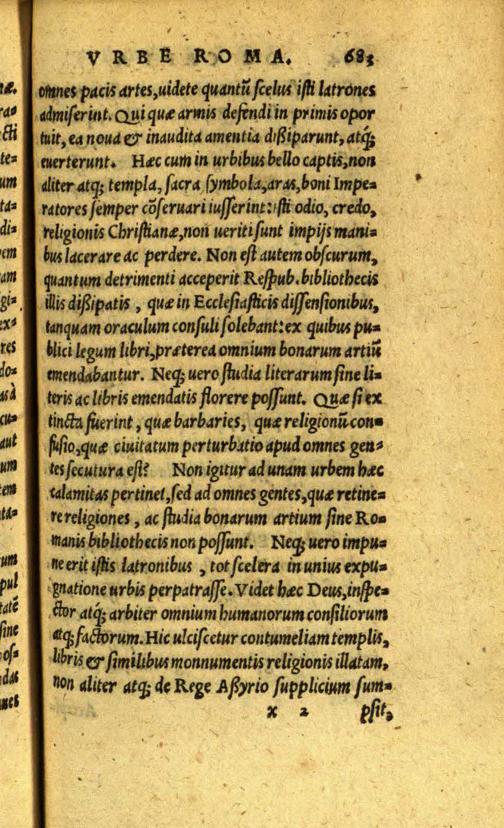 VRBE ROMA. 683
omnes pacis artes,uidete quantũ scelus isti latrones
admiserint. Qui quæ armis defendi in primis opor
tuit, ea noua & inaudita amentia dißiparunt, atq́;
euerterunt. Hæc cum in urbibus bello captis,non
aliter atq; templa, sacra symbola,aras,boni Impe-
ratores semper cõseruari iusserint:isti odio, credo,
religionis Christianæ,non ueriti sunt impijs mani-
bus lacerare ac perdere. Non est autem obscurum,
quantum detrimenti acceperit Respub.bibliothecis
illis dißipatis , quæ in Ecclesiasticis dissensionibus,
tanquam oraculum consuli solebant:ex quibus pu-
blici legum libri,præterea omnium bonarum artiũ
emendabantur. Neq; uero studia literarum sine li-
teris ac libris emendatis florere possunt. Quæ si ex
tincta fuerint , quæ barbaries, quæ religionũ con-
fusio,quæ ciuitatum perturbatio apud omnes gen-
tes secutura est? Non igitur ad unam urbem hæc
calamitas pertinet,sed ad omnes gentes,quæ retine-
re religiones , ac studia bonarum artium sine Ro-
manis bibliothecis non possunt. Neq; uero impu-
ne erit istis latronibus , tot scelera in unius expu-
gnatione urbis perpatrasse. Videt hæc Deus,inspe-
ctor atq; arbiter omnium humanorum consiliorum
atq; factorum. Hic ulciscetur contumeliam templis,
libris & similibus monnumentis religionis illatam,
non aliter atq; de Rege Aßyrio supplicium sum-
x 2 psit,